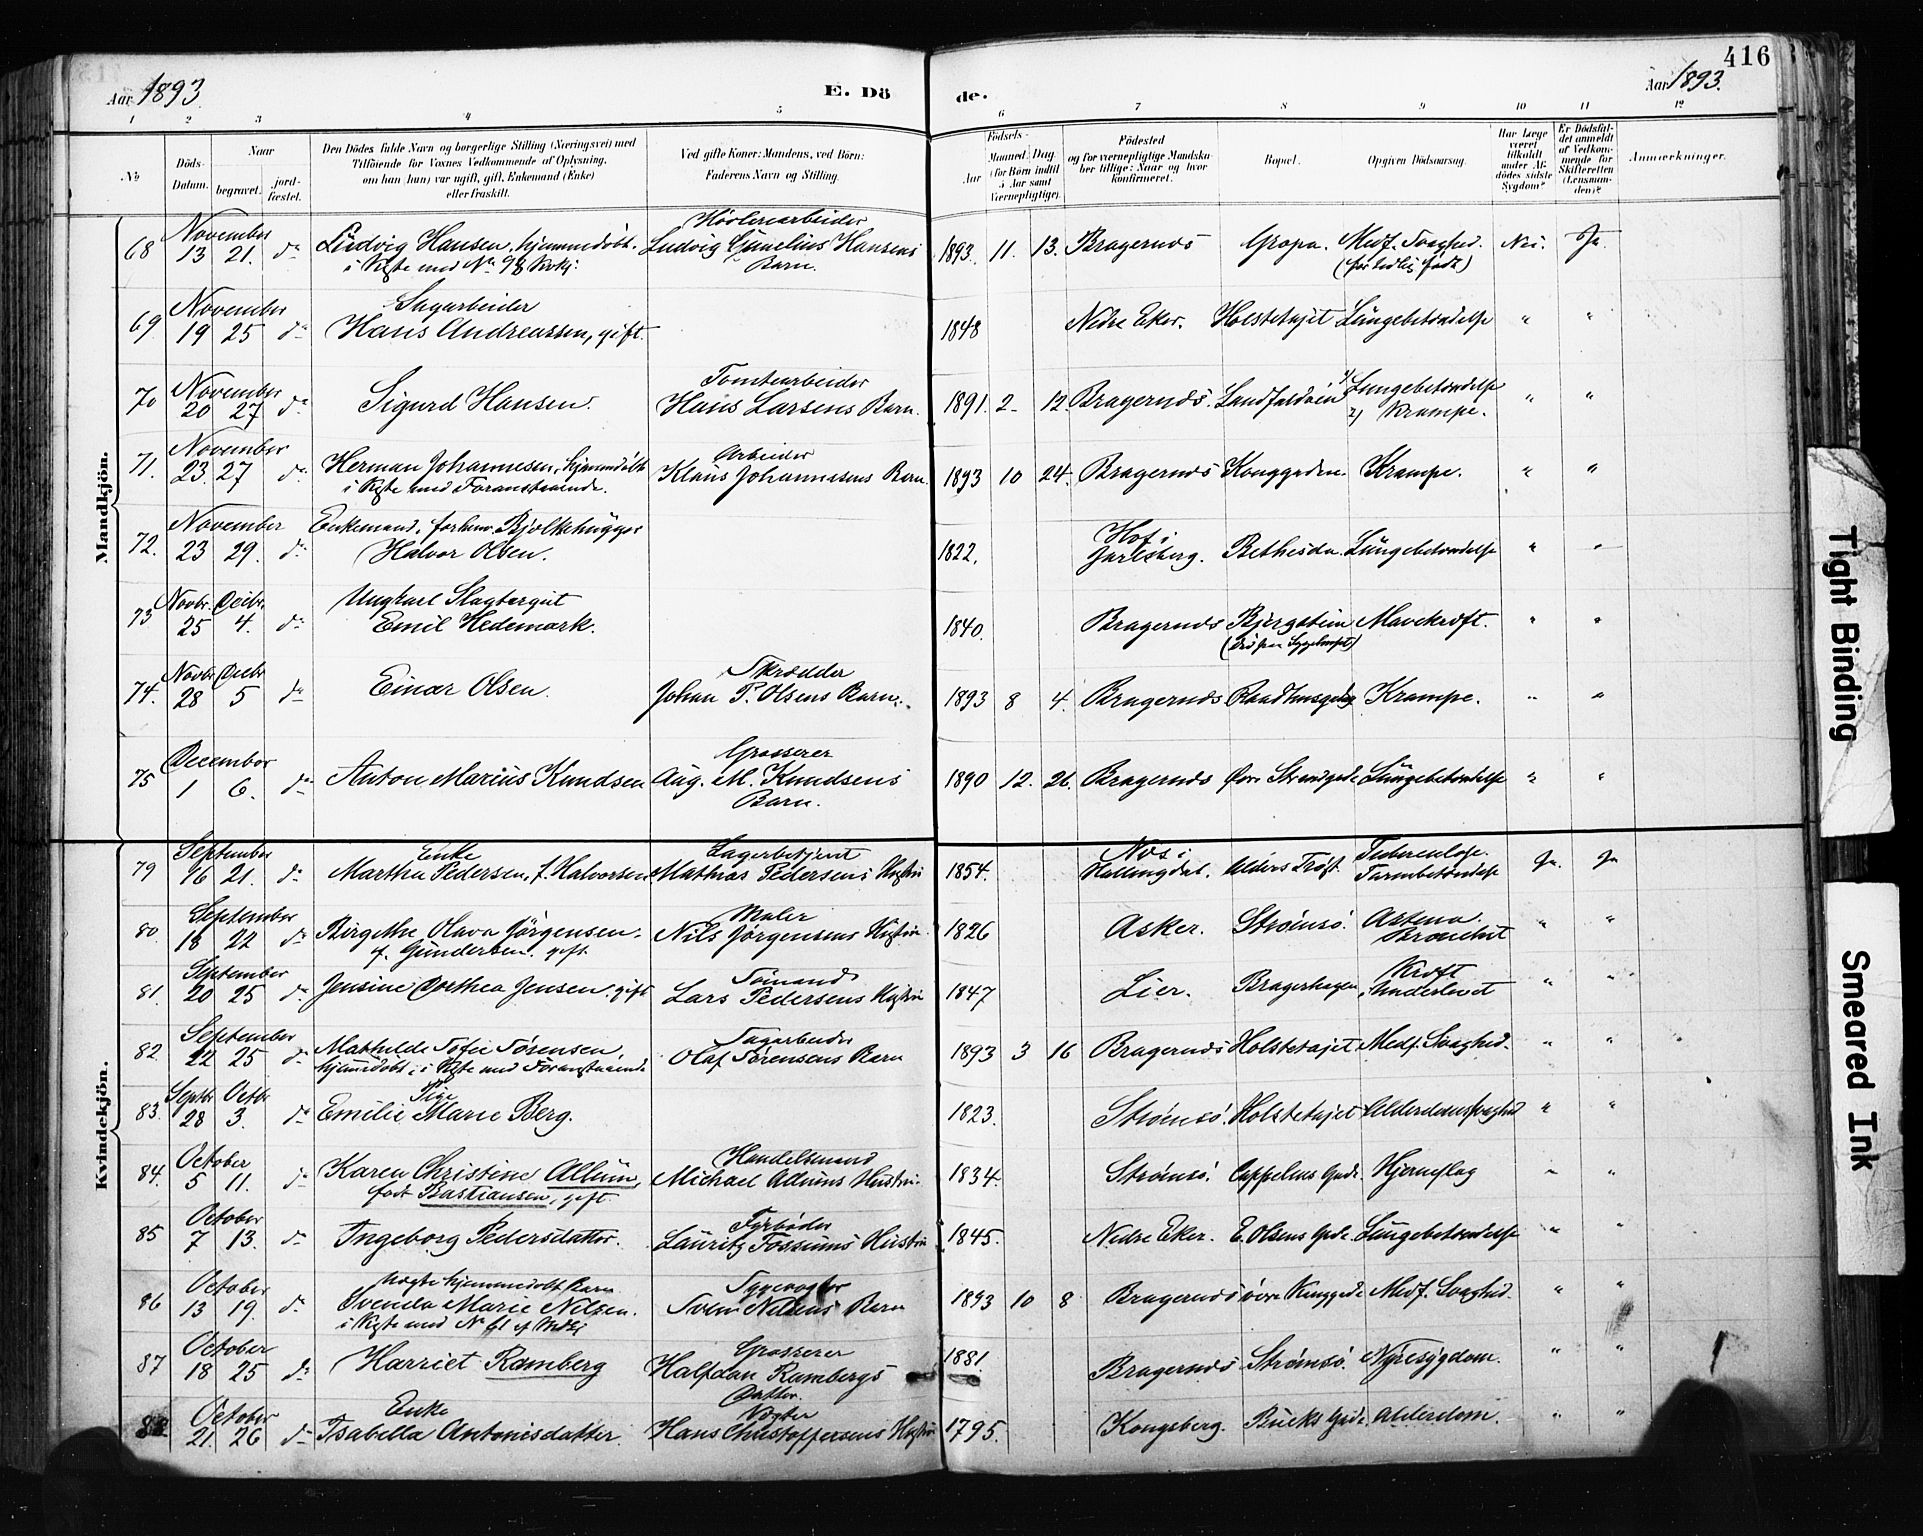 416
Aar 1893.
E. Dö de.
Aar 1893.
1 2 3 4 5 6 7 8 9 10 11 12
No
Döds-Datum.
Naar
begravet.
jord-fæstet.
Den Dödes fulde Navn og borgerlige Stilling (Næringsvei) med
Tilföiende for Voxnes Vedkommende af Oplysning,
om han (hun) var ugift, gift, Enkemand (Enke)
eller fraskilt.
Ved gifte Koner: Mandens, ved Börn:
Faderens Navn og Stilling.
Födsels-
Aar Maaned. Dag
(for Börn indtil
5 Aar samt
Værnepligtige).
Födested
og for værnepligtige Mandska-
ber tillige: Naar og hvor
konfirmeret.
Bopæl.
Opgiven Dödsaarsag.
Har Læge
været
tilkaldt
under Af-
dödes sidste
Sygdom?
Er Dödsfal-
det anmeldt
af Vedkom-
mende for
Skifteretten
(Lensman-
den)?
Anmærkninger.
Mandkjön.
68 November 13 21. do Ludvig Hansen, hjemmedøbt. i Kiste med No 98 Kvkj: Høvleriarbeider Ludvig Hansens Barn. 1893. 11. 13. Bragernæs Gropa. Medf. Svaghed. (for tidlig født) Nei. Ja.
69 November 19 25 do Sagarbeider Hans Andreassen, gift. 1848 Nedre Eker. Holstetajet Lungebetændelse " "
70 November 20 27 do Sigurd Hansen. Tomtearbeider Hans Larsens Barn. 1891. 2 12 Bragernæs. Landfaldøien 1) Lungebetændelse 2) Krampe. " "
71. November 23. 27 do Herman Johannesen, hjemmedøbt i Kiste med Foranstaaende. Arbeider Klaus Johannesens Barn. 1893 10 24. Bragernæs Konggaden. Krampe. " "
72. November 23 29. do Enkemand, forhenv. Bjelkehugger Halvor Olsen. 1822. Hof i Jarlsberg. Bethesda. Lungebetændelse " "
73 Novbr. Decbr. 25 4. do Ungkarl Slagtergut Emil Hedemark. 1840. Bragernæs Bjergstein Mavekræft. " "
74. Novbr Decbr 28 5 do Einar Olsen. Skrædder Johan P. Olsens Barn. 1893 8 4. Bragernæs Raadhusgden Krampe. " "
75 December 1 6. do Anton Marius Knudsen Grosserer Aug. M. Knudsens Barn. 1890 12. 26. Bragernæs Øvre Strandgade Lungebetændelse " "
Kvindekjön.
79 September 16 21. do Enke Martha Pedersen, f. Halvorsen Lagerbetjent Mathias Pedersens Hustru 1854. Næs i Hallingdal. Alders Trøst. Tuberculose. Tarmbetændelse Ja. Ja
80 September 18 22 do Birgithe Olava Jørgensen f. Gundersen. gift. Maler Nils Jørgensens Hustru 1826 Asker. Strømsø. Astma Bronchit " "
81. September 20 25 do Jensine Dorthea Jensen. gift Sømand Lars Pedersens Hustru 1847 Lier. Bragerhagen Kræft i Underlivet " "
82. September 22 25 do Mathilde Sofie Sørensen, hjemmedøbt, i Kiste med Foranstaaende Sagarbeider Olaf Sørensens Barn 1893 3 16 Bragernæs Holstetajet Medf. Svaghed. " "
83. Septbr Octbr 28 3. do Pige Emilie Marie Berg. 1823. Strømsø. Holstetajet Alderdomssvaghed " "
84. October 5 11. do Karen Christine Allum, født Bastiansen, gift. Handelsmand Michael Allums Hustru. 1834. Strømsø. Cappelens Gade. Hjerneslag " "
85 October 7 13. do Ingeborg Pedersdatter. Fyrbøder Lauritz Fossums Hustru 1845. Nedre Eker. E. Olsens Gade. Lungebetændelse " "
86 October 13 19. do Uægte hjemmedøbt Barn Svenda Marie Nilsen. i Kiste med No 61 af Mdkj Svein Nilsens Barn 1893 10 8 Bragernæs øvre Konggade Medf. Svaghed. " "
87 October 18 25 do Harriet Ramberg Grosserer Halfdan Rambergs Datter. 1881. Bragernæs Strømsø. Nyresygdom. " "
88. October 21. 26 do Enke Isabella Antonisdatter. Vægter Hans Christoffersens Hustru 1795. Kongsberg. Bucks Gade Alderdom. " "
Tight Binding
Smeared Ink